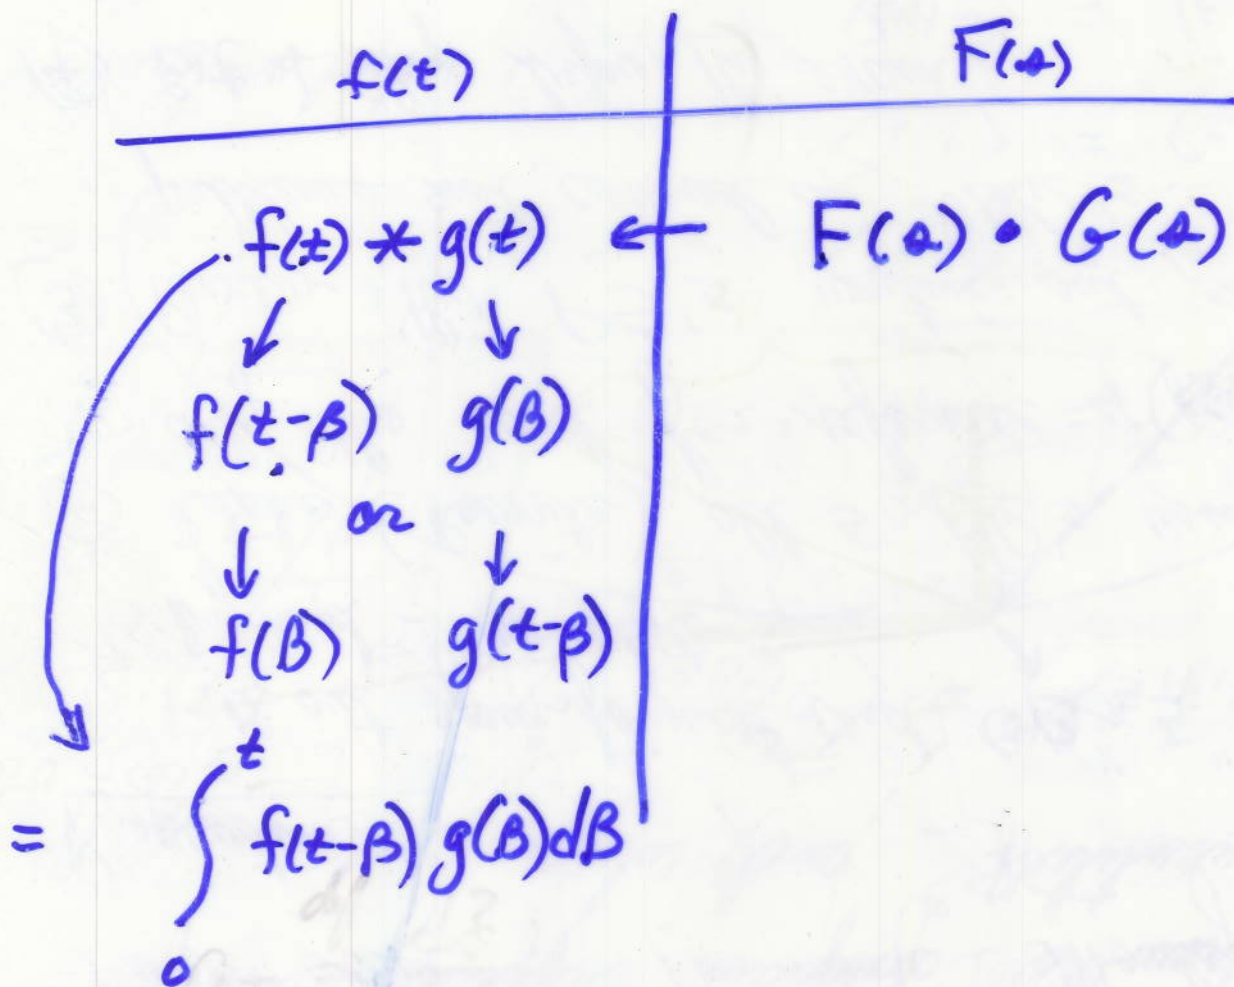 f(t) F(s)
f(t) * g(t) ← F(s) • G(s)
↙ ↘
f(t-β) g(β)
or
↓ ↓
f(β) g(t-β)
= ∫₀ᵗ f(t-β) g(β) dβ